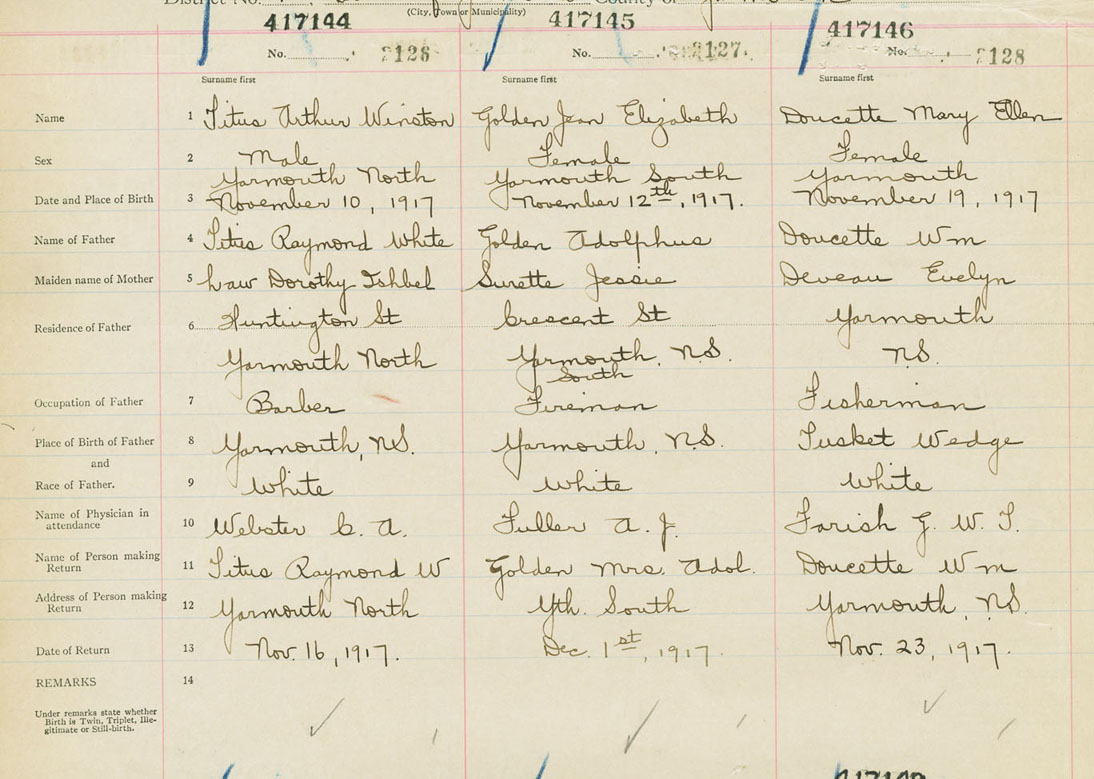 (City, Town or Municipality) County of
417144 417145 417146
No. 2126 No. 2127. No. 2128
Surname first Surname first Surname first
Name 1 Titus Arthur Winston Golden Jean Elizabeth Doucette Mary Ellen
Sex 2 Male Female Female
Yarmouth North Yarmouth South Yarmouth
Date and Place of Birth 3 November 10, 1917 November 12th, 1917. November 19, 1917
Name of Father 4 Titus Raymond White Golden Adolphus Doucette Wm
Maiden name of Mother 5 Law Dorothy Ishbel Surette Jessie Deveau Evelyn
Residence of Father 6 Huntington St Crescent St Yarmouth
Yarmouth North Yarmouth, N.S. N.S.
South
Occupation of Father 7 Barber Fireman Fisherman
Place of Birth of Father 8 Yarmouth, N.S. Yarmouth, N.S. Tusket Wedge
and
Race of Father. 9 White White White
Name of Physician in
attendance 10 Webster C. A. Fuller A. J. Farish G. W. T.
Name of Person making
Return 11 Titus Raymond W Golden Mrs. Adol. Doucette Wm
Address of Person making
Return 12 Yarmouth North Yth. South Yarmouth, N.S.
Date of Return 13 Nov. 16, 1917. Dec. 1st, 1917. Nov. 23, 1917.
REMARKS 14
Under remarks state whether
Birth is Twin, Triplet, Ille-
gitimate or Still-birth.